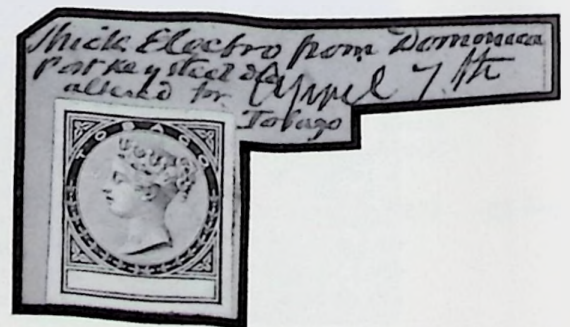 Thick Electro from Dominica
steel die
altered for April 7th
Tobago
TOBAGO